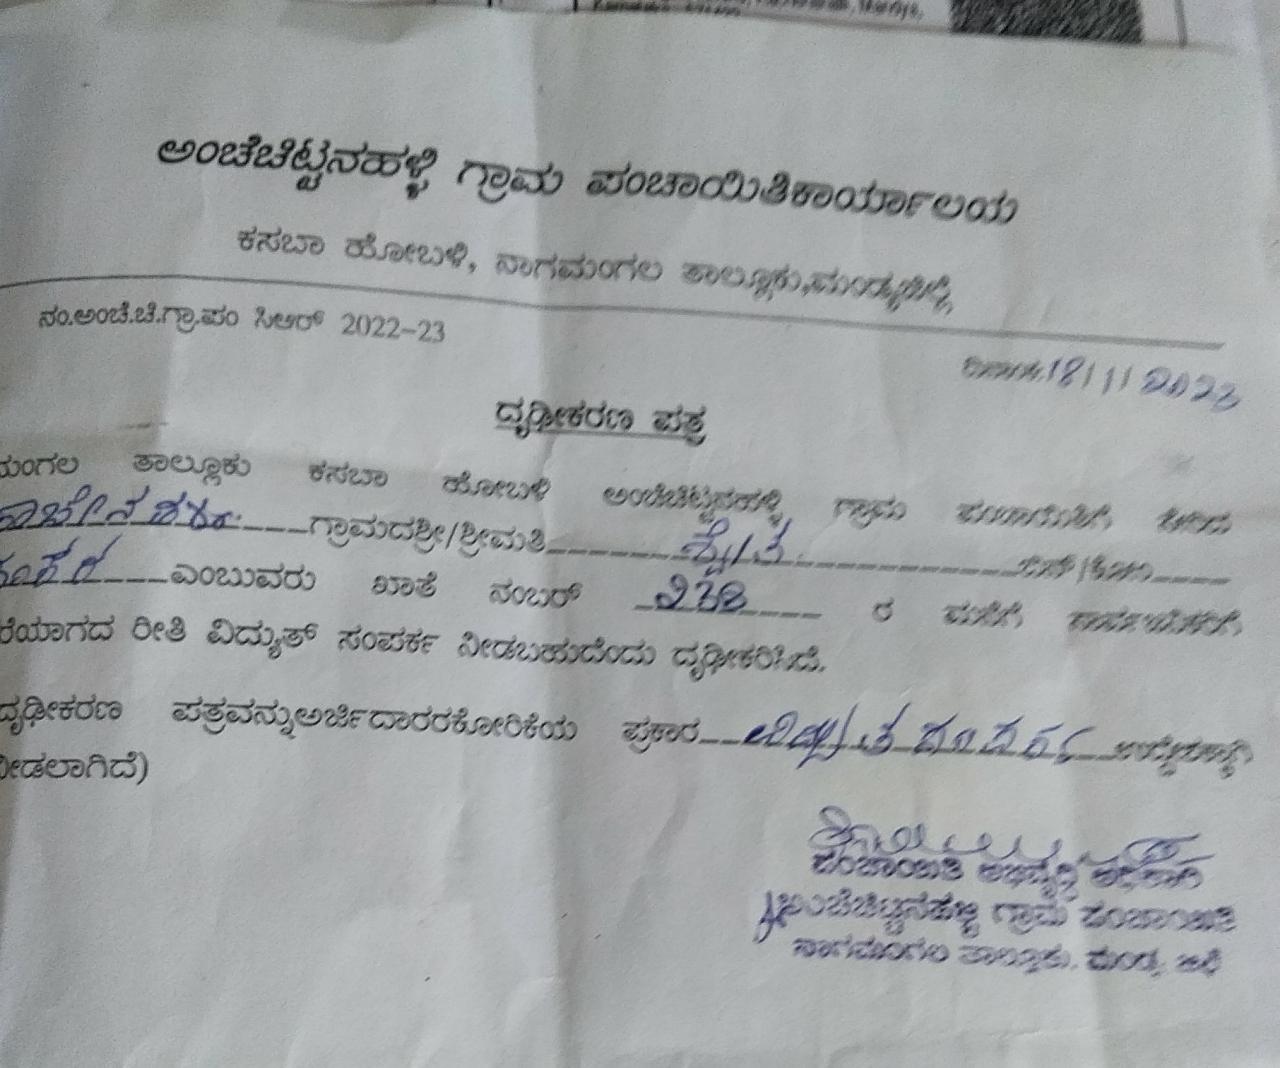 ಅಂಚೆಚಿಟ್ಟನಹಳ್ಳಿ ಗ್ರಾಮ ಪಂಚಾಯಿತಿಕಾರ್ಯಾಲಯ
ಕಸಬಾ ಹೋಬಳಿ, ನಾಗಮಂಗಲ ತಾಲ್ಲೂಕು,ಮಂಡ್ಯಜಿಲ್ಲೆ
ನಂ.ಅಂಚೆ.ಚಿ.ಗ್ರಾ.ಪಂ ಸಿಆರ್ 2022-23
ದಿನಾಂಕ:18/11/2022
ದೃಢೀಕರಣ ಪತ್ರ
ಮಂಗಲ ತಾಲ್ಲೂಕು ಕಸಬಾ ಹೋಬಳಿ ಅಂಚೆಚಿಟ್ಟನಹಳ್ಳಿ ಗ್ರಾಮ ಪಂಚಾಯಿತಿಗೆ ಸೇರಿದ
ಗ್ರಾಮದಶ್ರೀ/ಶ್ರೀಮತಿ
ಎಂಬುವರು ಖಾತೆ ನಂಬರ್ ರ ಮನೆಗೆ
ರೆಯಾಗದ ರೀತಿ ವಿದ್ಯುತ್ ಸಂಪರ್ಕ ನೀಡಬಹುದೆಂದು ದೃಢೀಕರಿಸಿದೆ.
ದೃಢೀಕರಣ ಪತ್ರವನ್ನುಅರ್ಜಿದಾರರಕೋರಿಕೆಯ ಪ್ರಕಾರ ವಿದ್ಯುತ ಸಂಪರ್ಕ
ನೀಡಲಾಗಿದೆ)
ಪಂಚಾಯಿತಿ ಅಭಿವೃದ್ಧಿ ಅಧಿಕಾರಿ
ಅಂಚೆಚಿಟ್ಟನಹಳ್ಳಿ ಗ್ರಾಮ ಪಂಚಾಯಿತಿ
ನಾಗಮಂಗಲ ತಾಲ್ಲೂಕು, ಮಂಡ್ಯ ಜಿಲ್ಲೆ